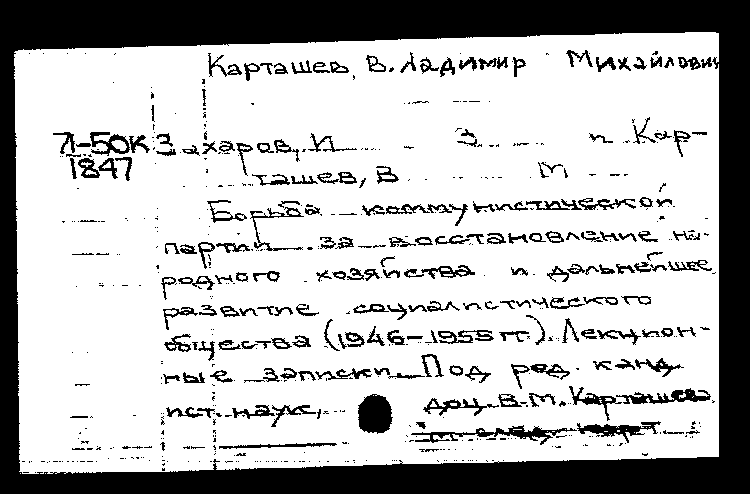 Карташев, Владимир Михайлович
71-50К Захаров, И. З. и Кар-
1847 ташев, В. М.
Борьба коммунистической
партии за восстановление на-
родного хозяйства и дальнейшее
развитие социалистического
общества (1946-1955 гг.). Лекцион-
ные записки. Под ред. канд.
ист. наук, доц. В. М. Карташева
см. след. карт.